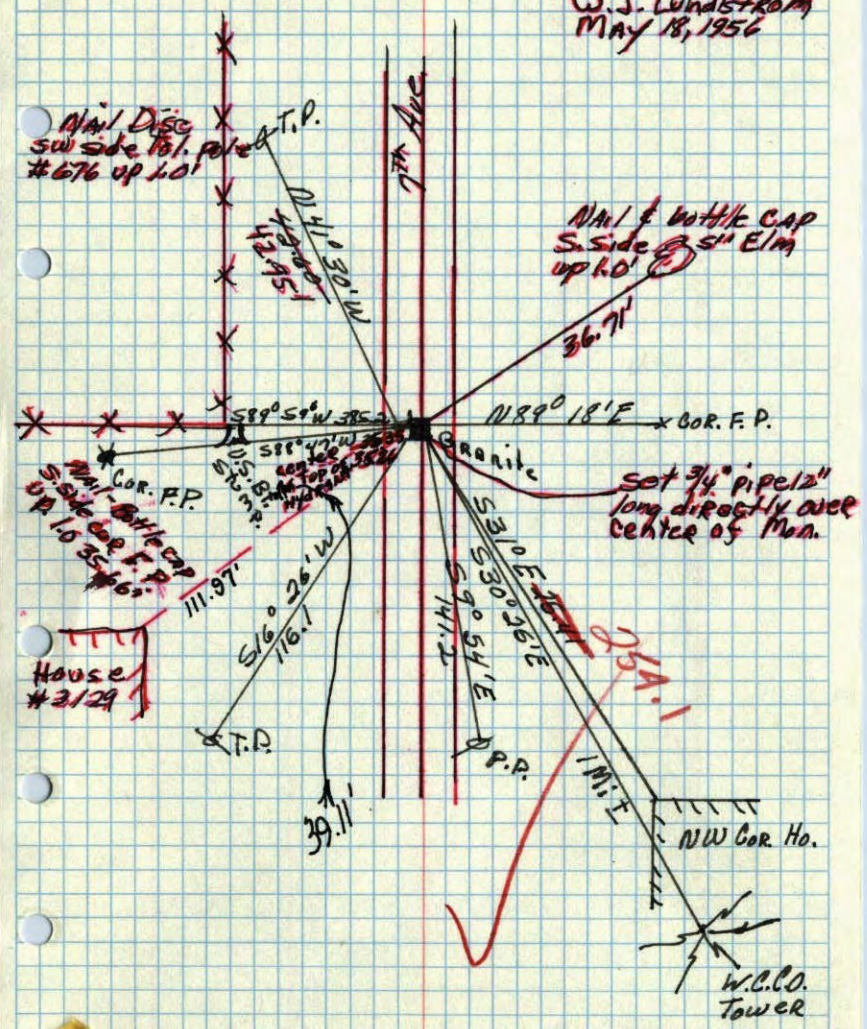 W.J. Lundstrom
MAY 18, 1956
NAil Disc
SW side Tel. pole
#676 up 1.0'
T.P.
7th Ave.
N41° 30' W
42.60
42.95'
NAil & bottle CAP
S. Side 35" Elm
up 1.0'
36.71'
S89° 59' W 385.2
N89° 18' E
COR. F.P.
S88° 47' W 35.35
35.26
center
top of
Hydrant
U.S.B.
Stump.
Granite
Cor. F.P.
NAil-Bottle CAP
S. side cor F.P.
up 1.0 35.66
111.97'
set 3/4" pipe 12"
long directly over
center of Mon.
S31° E 254.1
S30° 26' E
1 Mi. ±
S9° 54' E
141.2
S16° 26' W
116.1
House
#3129
T.P.
P.P.
39.11'
NW Cor. Ho.
W.C.C.O.
Tower